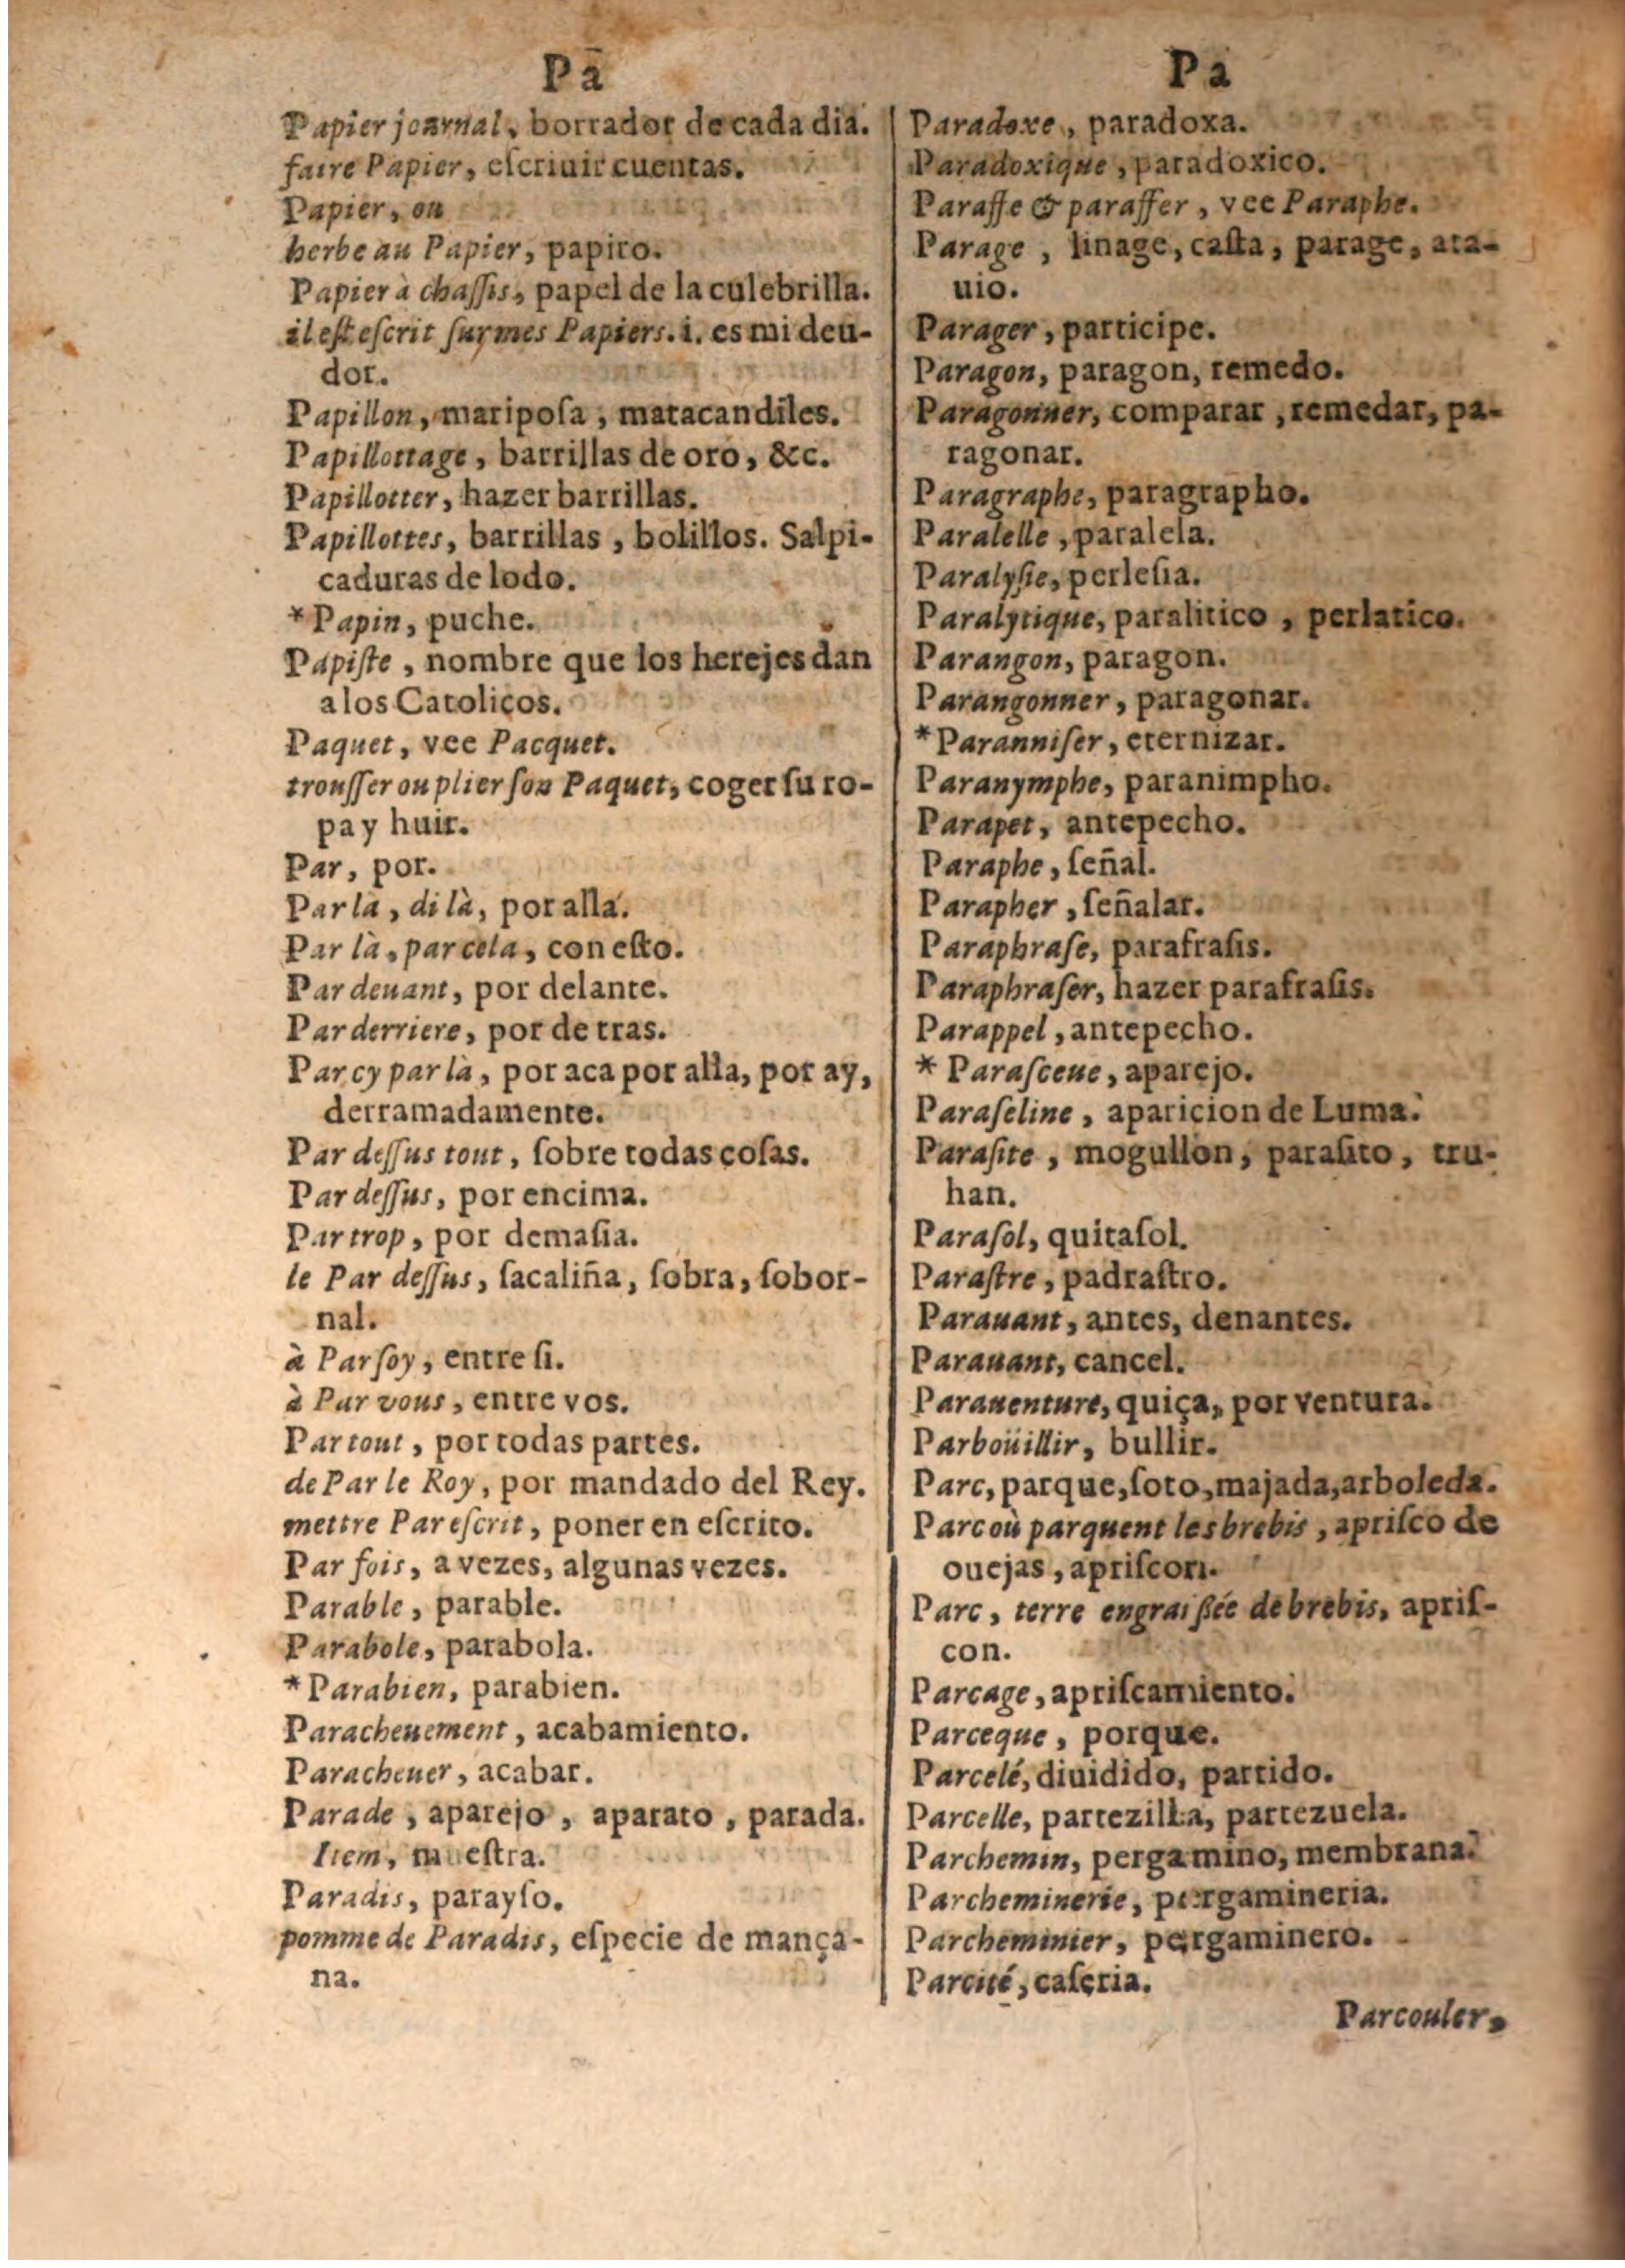 Pa
Papier journal, borrador de cada dia.
faire Papier, eſcriuir cuentas.
Papier, ou
herbe au Papier, papiro.
Papier à chaſſis, papel de la culebrilla.
il eſt eſcrit ſur mes Papiers. i. es mi deu-
dor.
Papillon, maripoſa, matacandiles.
Papillottage, barrillas de oro, &c.
Papillotter, hazer barrillas.
Papillottes, barrillas, bolillos. Salpi-
caduras de lodo.
*Papin, puche.
Papiſte, nombre que los herejes dan
a los Catolicos.
Paquet, vee Pacquet.
trouſſer ou plier ſon Paquet, coger ſu ro-
pa y huir.
Par, por.
Par la, di là, por alla.
Par là, par cela, con eſto.
Par deuant, por delante.
Par derriere, por de tras.
Par cy par là, por aca por alla, por ay,
derramadamente.
Par deſſus tout, ſobre todas coſas.
Par deſſus, por encima.
Par trop, por demaſia.
le Par deſſus, ſacaliña, ſobra, ſobor-
nal.
à Par ſoy, entre ſi.
à Par vous, entre vos.
Par tout, por todas partes.
de Par le Roy, por mandado del Rey.
mettre Par eſcrit, poner en eſcrito.
Par fois, a vezes, algunas vezes.
Parable, parable.
Parabole, parabola.
*Parabien, parabien.
Paracheuement, acabamiento.
Paracheuer, acabar.
Parade, aparejo, aparato, parada.
Item, mueſtra.
Paradis, parayſo.
pomme de Paradis, eſpecie de mança-
na.
Pa
Paradoxe, paradoxa.
Paradoxique, paradoxico.
Paraffe & paraffer, vee Paraphe.
Parage, linage, caſta, parage, ata-
uio.
Parager, participe.
Paragon, paragon, remedo.
Paragonner, comparar, remedar, pa-
ragonar.
Paragraphe, paragrapho.
Paralelle, paralela.
Paralyſie, perleſia.
Paralytique, paralitico, perlatico.
Parangon, paragon.
Parangonner, paragonar.
*Paranniſer, eternizar.
Paranymphe, paranimpho.
Parapet, antepecho.
Paraphe, ſeñal.
Parapher, ſeñalar.
Paraphraſe, parafraſis.
Paraphraſer, hazer parafraſis.
Parappel, antepecho.
* Paraſceue, aparejo.
Paraſeline, aparicion de Luma.
Paraſite, mogullon, paraſito, tru-
han.
Paraſol, quitaſol.
Paraſtre, padraſtro.
Parauant, antes, denantes.
Parauant, cancel.
Parauenture, quiça, por ventura.
Parboüillir, bullir.
Parc, parque, ſoto, majada, arboleda.
Parc où parquent les brebis, apriſco de
ouejas, apriſcon.
Parc, terre engraiſſée de brebis, apriſ-
con.
Parcage, apriſcamiento.
Parceque, porque.
Parcelé, diuidido, partido.
Parcelle, partezilla, partezuela.
Parchemin, pergamino, membrana.
Parcheminerie, pergamineria.
Parcheminier, pergaminero.
Parcité, caſeria.
Parcouler,